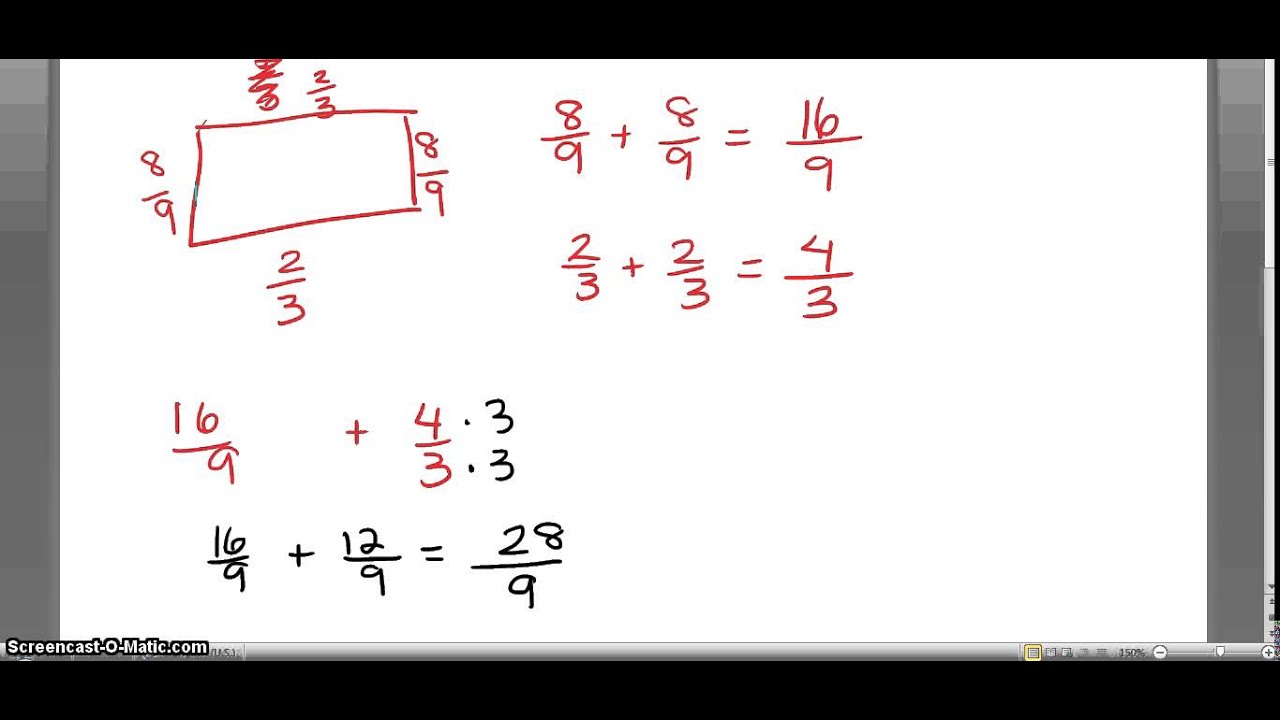 2/3
8/9
8/9
2/3
8/9 + 8/9 = 16/9
2/3 + 2/3 = 4/3
16/9 + 4/3 · 3 · 3
16/9 + 12/9 = 28/9
Screencast-O-Matic.com
(U.S.)
150%